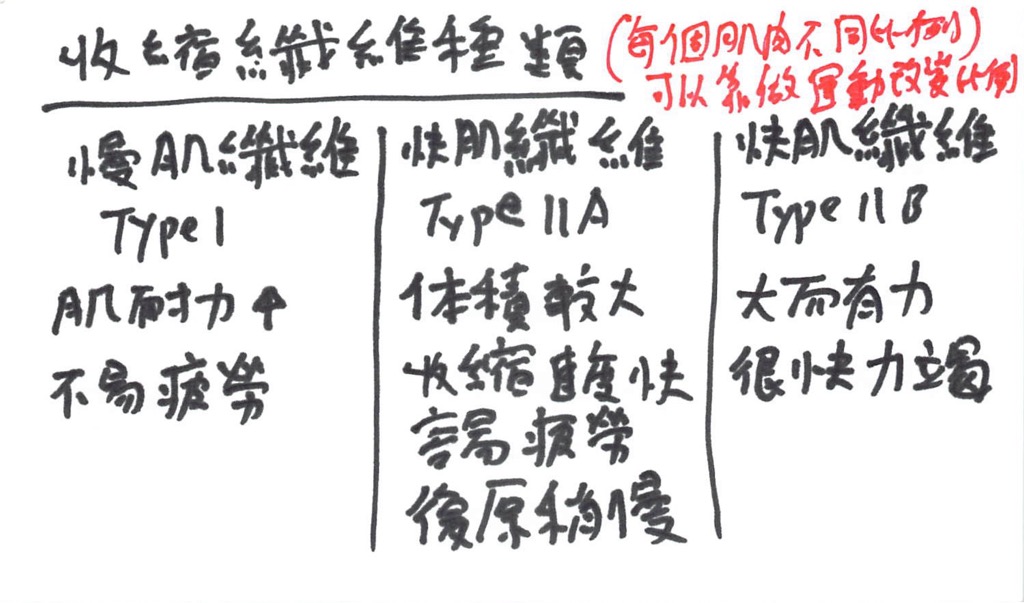 收縮纖維種類
(每個肌肉不同比例)
可以靠做運動改變比例
慢肌纖維
Type I
肌耐力↑
不易疲勞
快肌纖維
Type II A
体積較大
收縮速度快
容易疲勞
後原稍慢
快肌纖維
Type II B
大而有力
很快力竭